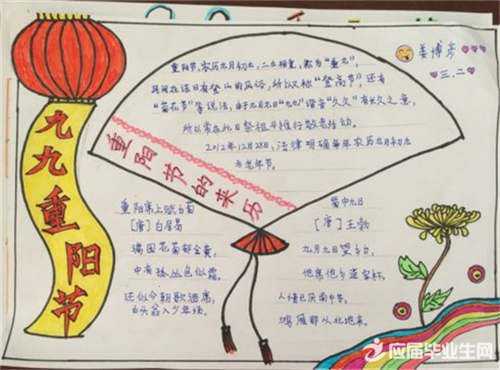 九九重阳节
重阳节,农历九月初九,二九相重,称为“重九”,
民间在该日有登高的风俗,所以又称“登高节”,还有
“菊花节”等说法,由于九月九日“九九”谐音“久久”有长久之意,
所以常在此日祭祖与推行敬老活动。
2012年12月28日,法律明确每年农历九月初九
为老年节。
重阳节的来历
姜博彦
三、二
重阳席上赋白菊
[唐]白居易
满园花菊郁金黄,
中有孤丛色似霜。
还似今朝歌酒席,
白头翁入少年场。
蜀中九日
[唐]王勃
九月九日望乡台,
他席他乡送客杯。
人情已厌南中苦,
鸿雁那从北地来。
应届毕业生网